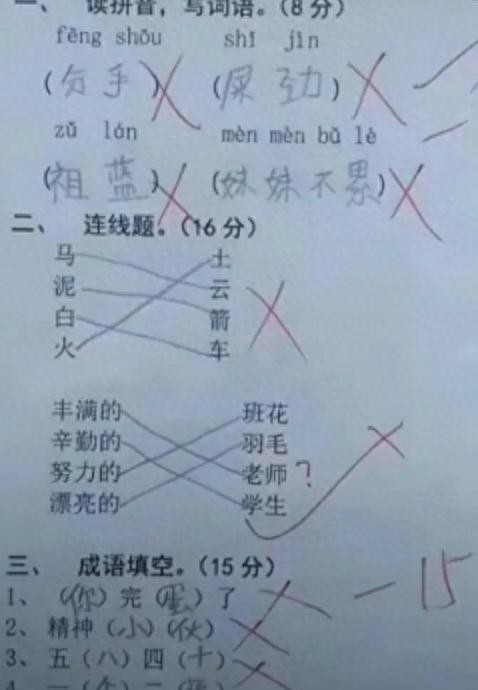 一、 读拼音，写词语。（8分）
fēng shōu shǐ jìn
（分手） （屎劲）
zǔ lán mèn mèn bǔ lè
（祖蓝） （妹妹不累）
二、 连线题。（16分）
马 土
泥 云
白 箭
火 车
丰满的 班花
辛勤的 羽毛
努力的 老师？
漂亮的 学生
三、 成语填空。（15分） -15
1、（你）完（蛋）了
2、精神（小）（伙）
3、五（八）四（十）
4、一（个）二